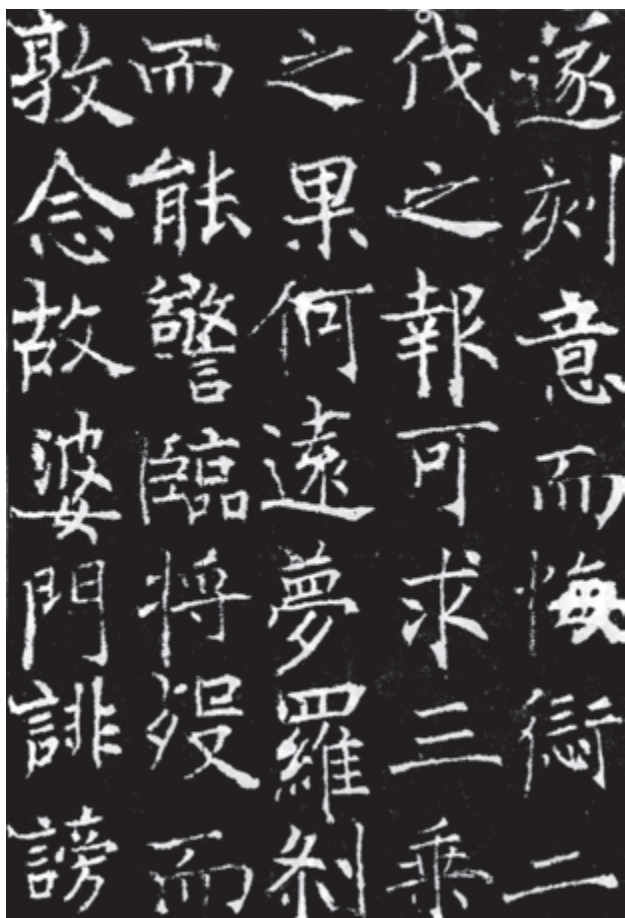 遂刻意而悔愆二
代之報可求三乗
之果何遠夢羅刹
而能驚臨将歿而
敦念故婆門誹謗